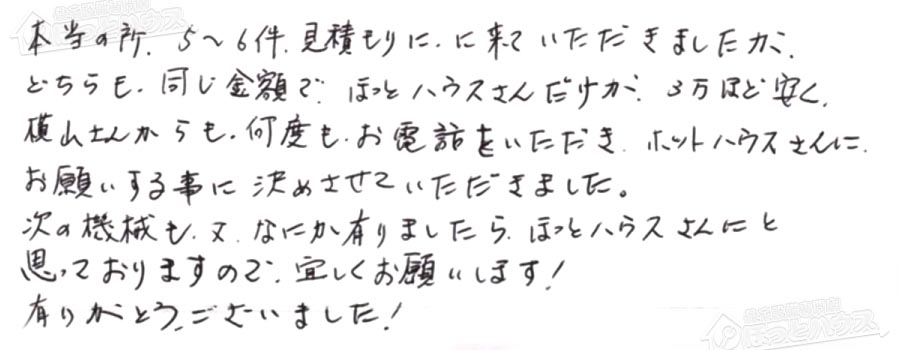 本当の所、5～6件、見積もりに、に来ていただきましたが、
どちらも、同じ金額で、ほっとハウスさんだけが、3万ほど安く、
横山さんからも、何度も、お電話をいただき、ホットハウスさんに、
お願いする事に決めさせていただきました。
次の機械も、又、なにか有りましたら、ほっとハウスさんにと
思っておりますので、宜しくお願いします!
有りがとうございました!
ほっとハウス